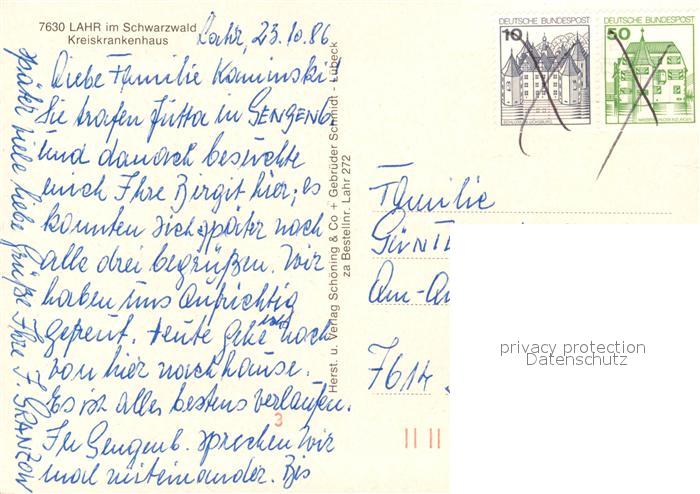 7630 LAHR im Schwarzwald
Kreiskrankenhaus
Lahr, 23.10.86
Liebe Familie Kaminski!
Sie trafen Jutta in GENGENB.
und danach besuchte
mich Ihre Birgit hier; es
konnten sich später noch
alle drei begrüßen. Wir
haben uns aufrichtig
gefreut. Heute gehe ich noch
von hier nachhause.
Es ist alles bestens verlaufen.
In Gengenb. sprechen wir
mal miteinander. Bis
später viele liebe Grüße Ihre F. GRANZOW
Herst. u. Verlag Schöning & Co + Gebrüder Schmidt - Lübeck
za Bestellnr. Lahr 272
3
DEUTSCHE BUNDESPOST
10
DEUTSCHE BUNDESPOST
50
Familie
GÜNT
Am-
7614
privacy protection
Datenschutz